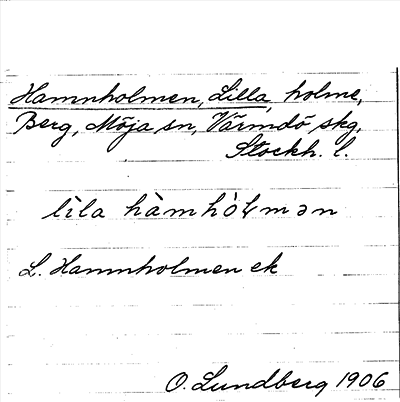 Hamnholmen, Lilla, holme,
Berg, Möja sn, Värmdö skg,
Stockh. l.
lìla hàmhòɫmən
L. Hamnholmen ek
O. Lundberg 1906